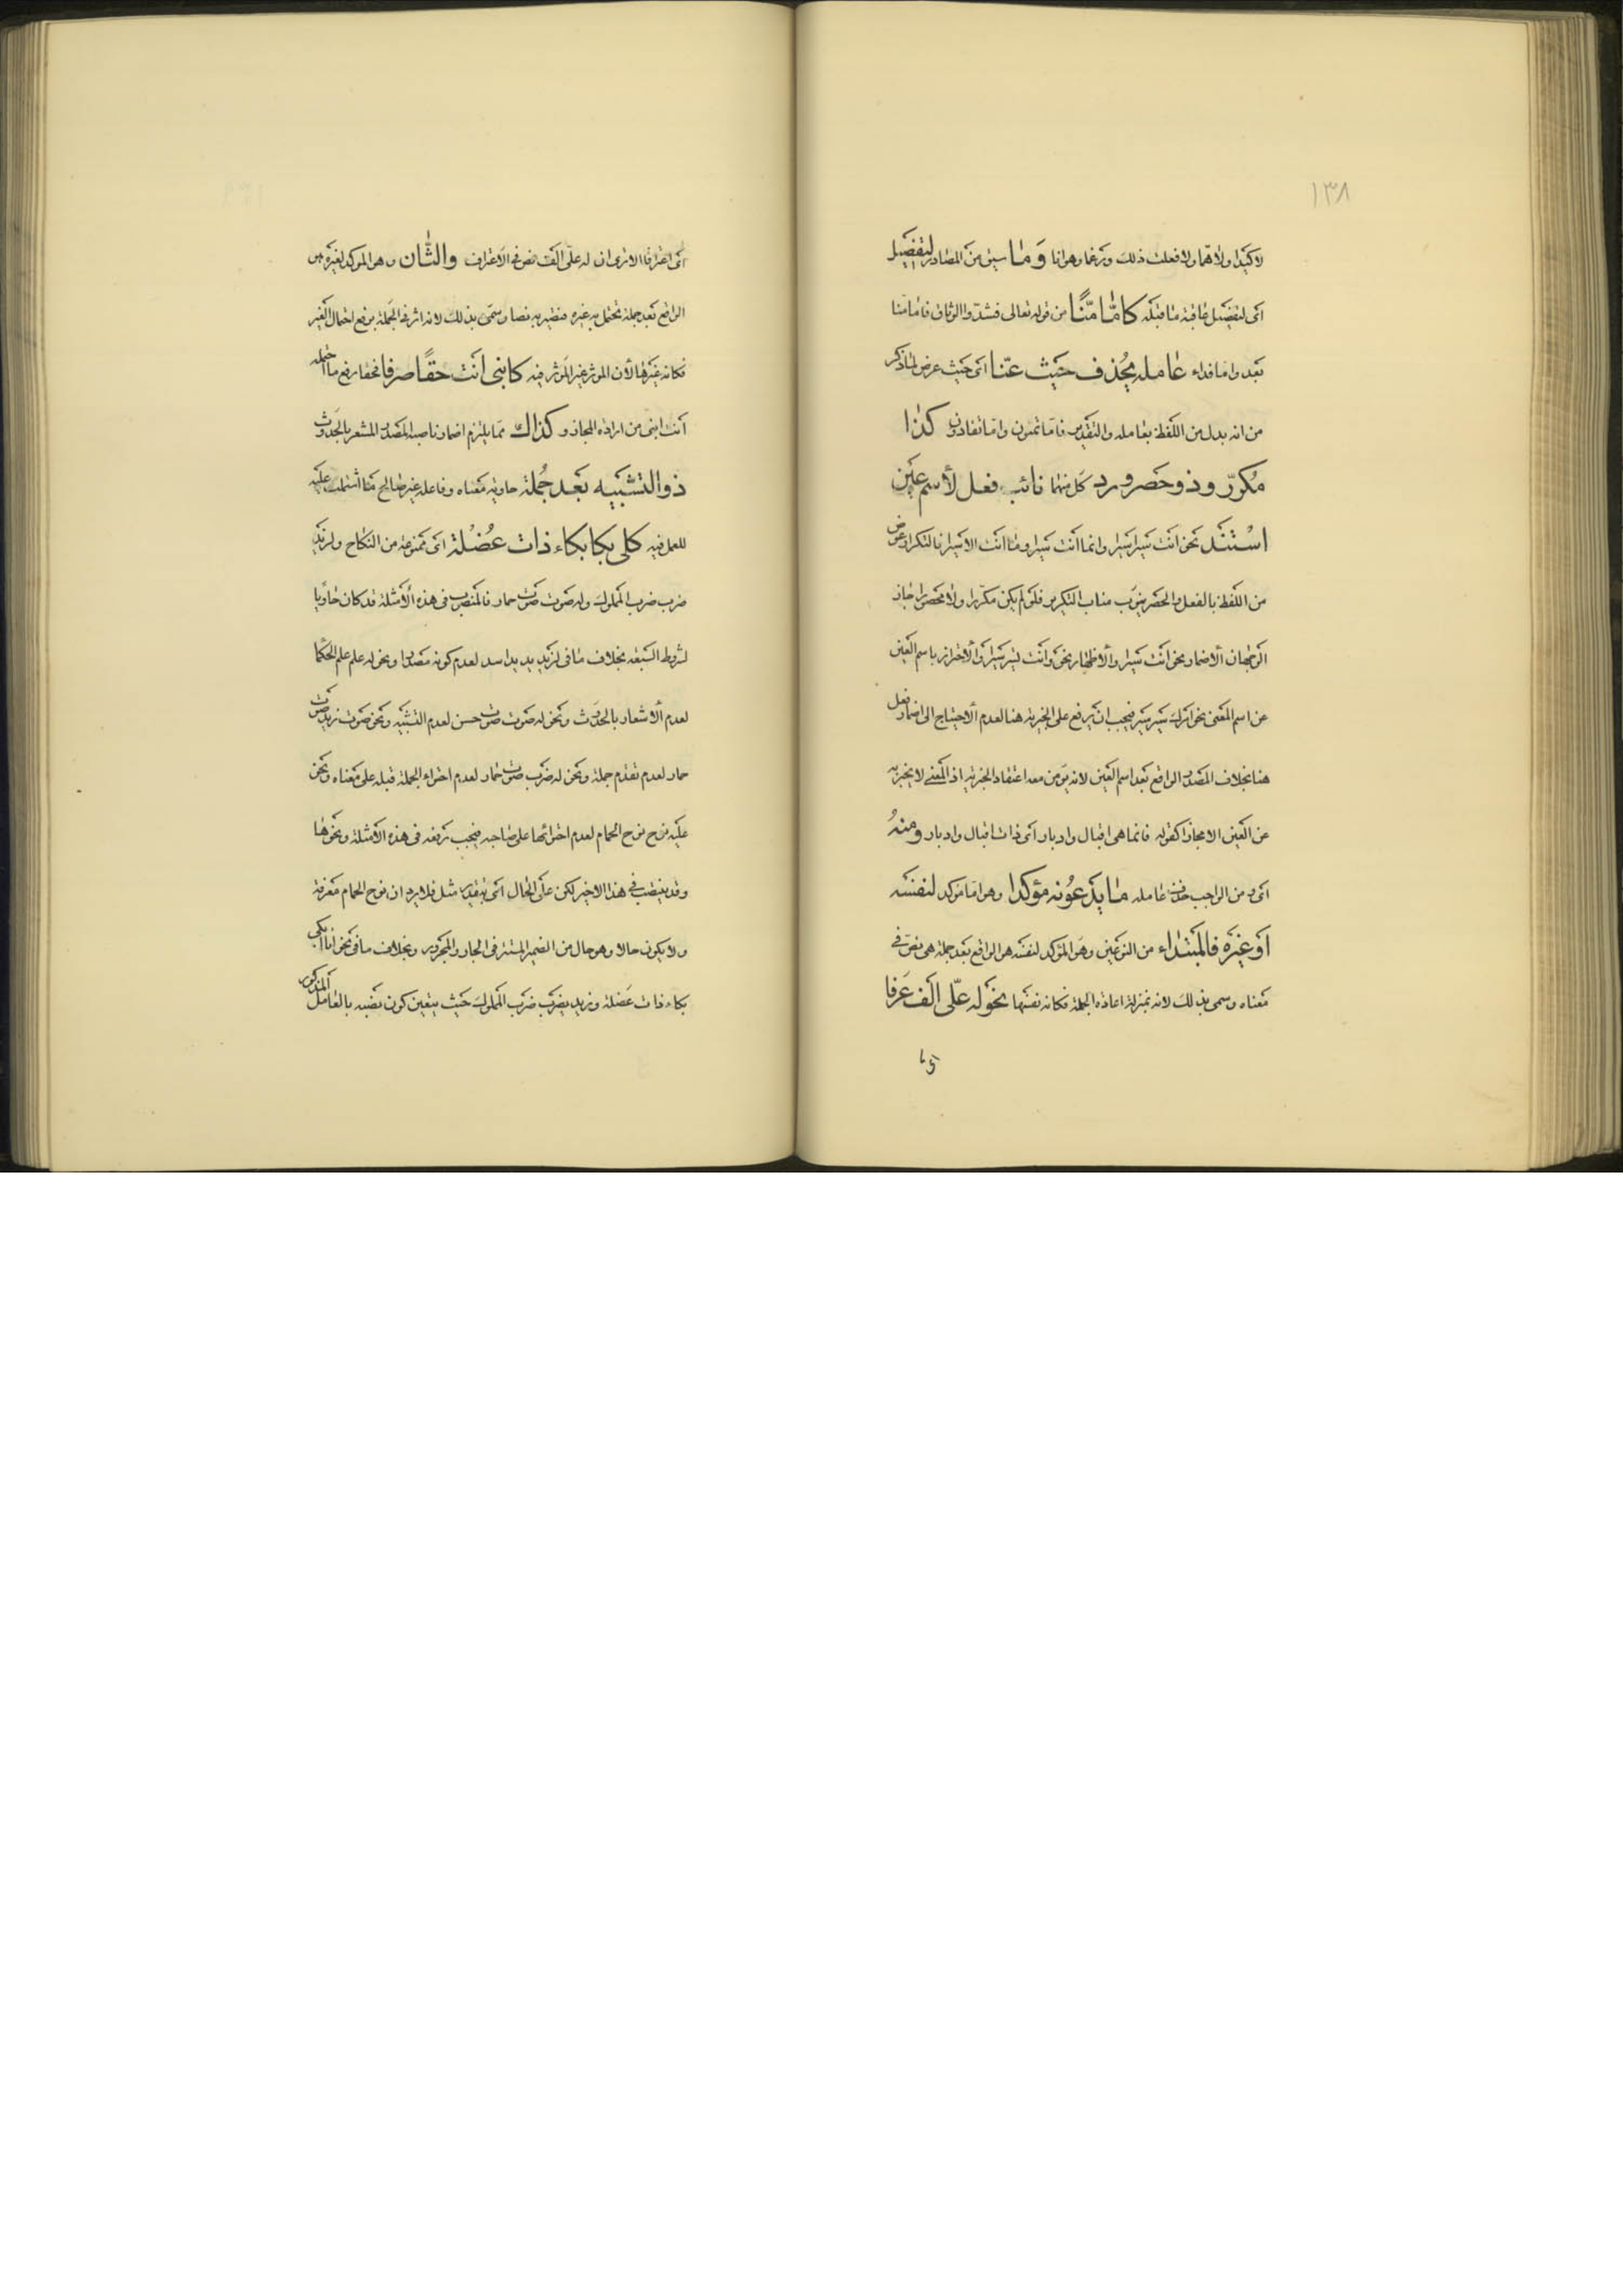 ١٣٨
لا كيدا ولا هما ولا فعلت ذلك ورغما وهوانا وَمٰا سيق من المصادر لتفصيل
اى لتفصيل عاقبة ما قبله كامّا مَنًّا من قوله تعالى فشدّوا الوثاق فاما منا
بعد واما فداء عٰامله يُحذف حيث عنّا اى حيث عرض لما ذكر
من انه بدل من اللفظ بعامله والتقدير فاما تمنون واما تفادون كذٰا
مُكرّر وذو حصر ورد كل منهما نائب فعل لأسم عين
اسْتند نحو انت سيرا سيرا وانما انت سيرا وما انت الا سيرا فالتكرار عوض
من اللفظ بالفعل والحصر ينوب مناب التكرير فلو لم يكن مكررا ولا محصورا جاز
الوجهان الأضمار نحو انت سيرا والأظهار نحو انت تسير سيرا والأحتراز باسم العين
عن اسم المعنى نحو امرك سير سير فيجب ان يرفع على الخبرية هنا لعدم الأحتياج الى اضمار فعل
هنا بخلاف المصدر الواقع بعد اسم العين لانه يؤمن معه اعتقاد الخبرية اذ المعنى لا يخبر به
عن العين الا مجازا كقوله فانما هى اقبال وادبار اى ذات اقبال وادبار ومنهُ
اى ومن الواجب حذف عامله مٰا يَدعُونه مؤكدا وهو اما مؤكد لنفسه
أو غيره فالمبتداء من النوعين وهو المؤكد لنفسه هو الواقع بعد جملة هى نص فى
معناه وسمى بذلك لانه بمنزلة اعادة الجملة فكانه نفسها نحو له علّى الف عرفا
اى
اى اعترافا الا ترى ان له علّى الف نص فى الاعتراف والثّان وهو المؤكد لغيره هو
الواقع بعد جملة تحتمل به غيره فتصير به نصا وسمى بذلك لانه اثر فى الجملة برفع احتمال الغير
فكانه غيرها لأن المؤثر غير المؤثر فيه كابنى انت حقًا صرفا فحقا رفع ما احتمله
انت ابنى من ارادة المجاز و كذاك مما يلزم اضمار ناصبه المصدر المشعر بالحدوث
ذو التشبيه بعد جُملة حاوية معناه وفاعله غير صالح ما اشتملت عليه
للعمل فيه كلى بكا بكاء ذات عُضْلة اى ممنوعة من النكاح ولزيد
ضرب ضرب الملوك وله صوت صوت حمار فالمنصوب فى هذه الأمثلة قد كان حاويا
لشروط السبعة بخلاف ما فى لزيد يد يد اسد لعدم كونه مصدرا ونحو له علم علم الحكما
لعدم الأشعار بالحدث ونحو له صوت صوت حسن لعدم التشبيه ونحو صوت زيد صوت
حمار لعدم تقدم جملة ونحو له ضرب صوت حمار لعدم احتواء الجملة قبله على معناه ونحو
عليه نوح نوح الحمام لعدم احتوائها على صاحبه فيجب رفعه فى هذه الأمثلة ونحوها
وقد ينصب فى هذا الاخير لكن على الحال اى بتقدير مثل فلا يرد ان نوح الحمام معرفة
ولا يكون حالا وهو حال من الضمير المستتر فى الجار والمجرور وبخلاف ما فى نحو انا ابكى
بكاء ذات عضلة وزيد يضرب ضرب الملوك حيث يتعين كون نصبه بالعامل المذكور